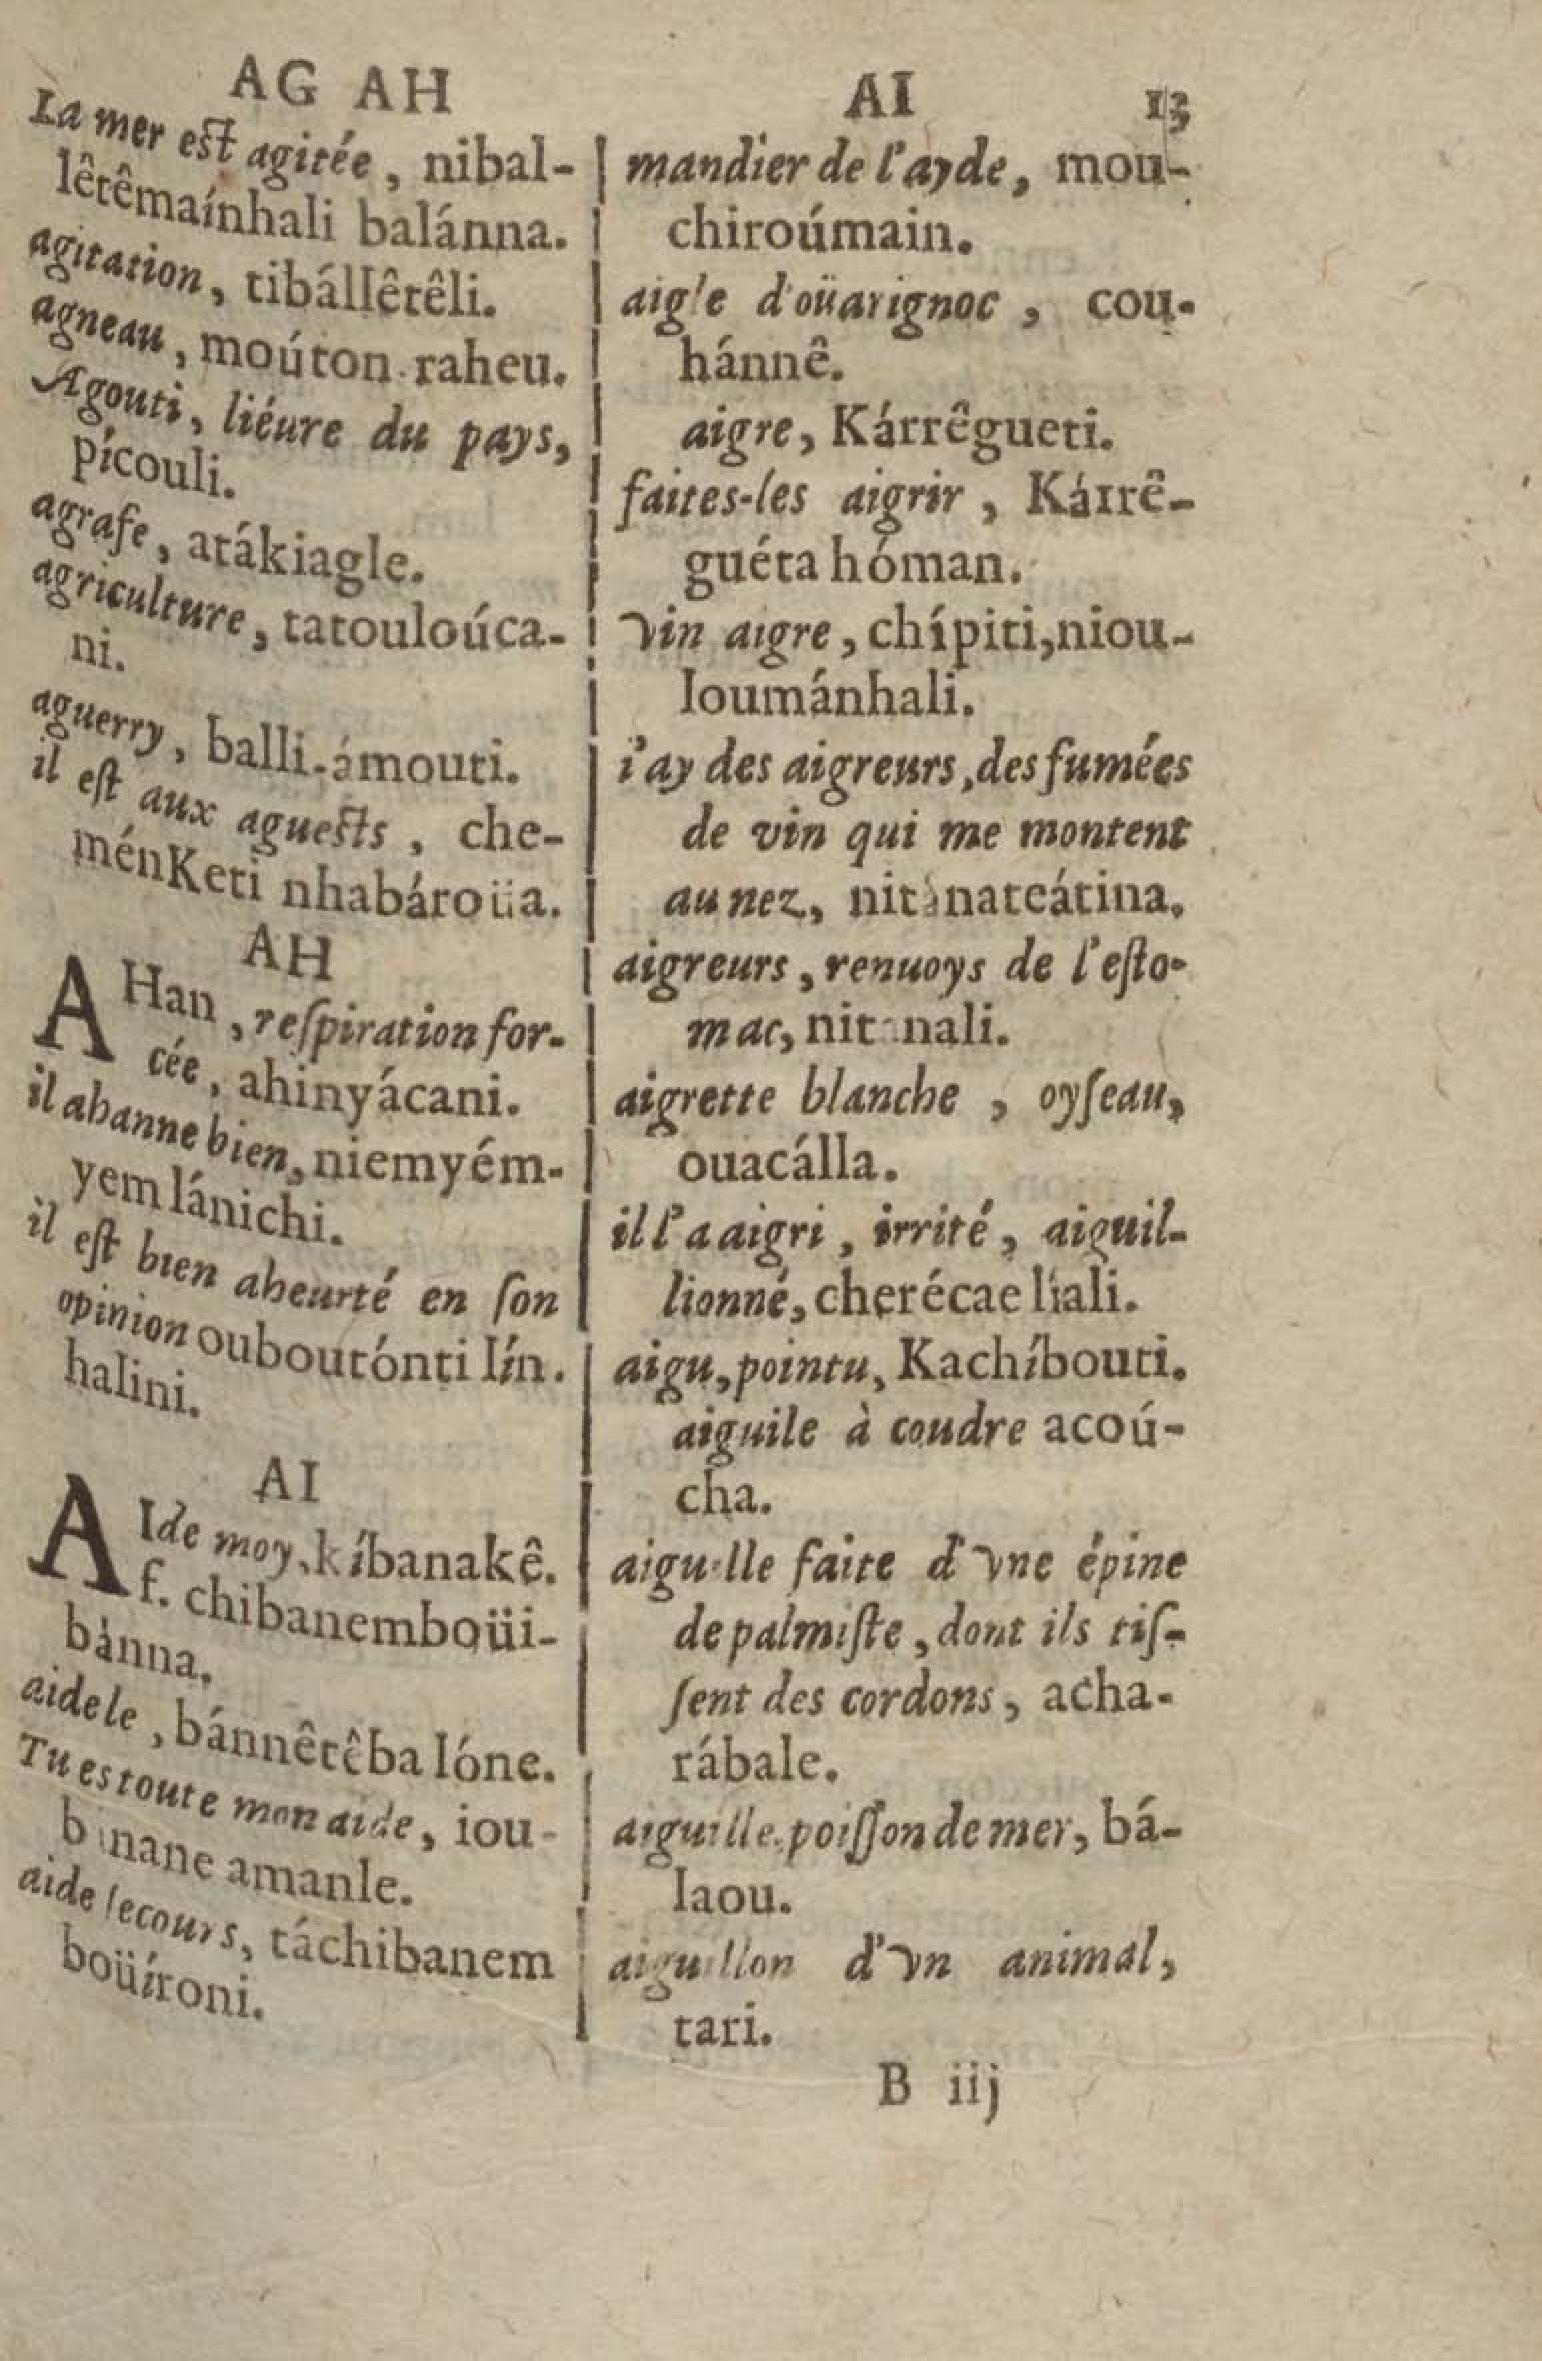 AG AH
La mer est agitée, nibal-
lêtêmaínhali balánna.
agitation, tibállêtêli.
agneau, moúton raheu.
Agouti, liéure du pays,
pícouli.
agrafe, atákiagle.
agriculture, tatouloúca-
ni.
aguerry, balli-ámouti.
il eſt aux aguests, che-
ménKeti nhabároüa.
AH
AHan, reſpiration for-
cée, ahinyácani.
il ahanne bien, niemyém-
yem lánichi.
il eſt bien aheurté en ſon
opinion ouboutónti lín.
halini.
AI
AIde moy, kíbanakê.
f. chibanemboüi-
bànna.
aide le, bánnêtêba lóne.
Tu es toute mon aide, iou-
binane amanle.
aide ſecours, táchibanem
boüíroni.
AI 13
mandier de l'ayde, mou-
chiroúmain.
aigle d'oüarignoc, cou-
hánnê.
aigre, Kárrêgueti.
faites-les aigrir, Kárrê-
guéta hóman.
vin aigre, chípiti, niou-
loumánhali.
i'ay des aigreurs, des fumées
de vin qui me montent
au nez, nitànateátina.
aigreurs, renuoys de l'eſto-
mac, nitanali.
aigrette blanche, oyſeau,
ouacálla.
il l'a aigri, irrité, aiguil-
lionné, cherécae líali.
aigu, pointu, Kachíbouti.
aiguile à coudre acoú-
cha.
aiguille faite d'vne épine
de palmiſte, dont ils tiſ-
ſent des cordons, acha-
rábale.
aiguille, poiſſon de mer, bá-
laou.
aiguillon d'vn animal,
tari.
B iij